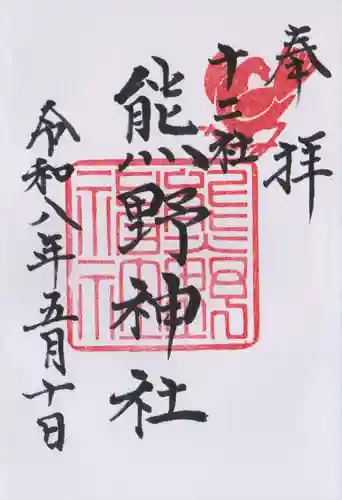 奉拝
十二社
熊野神社
令和八年五月十日